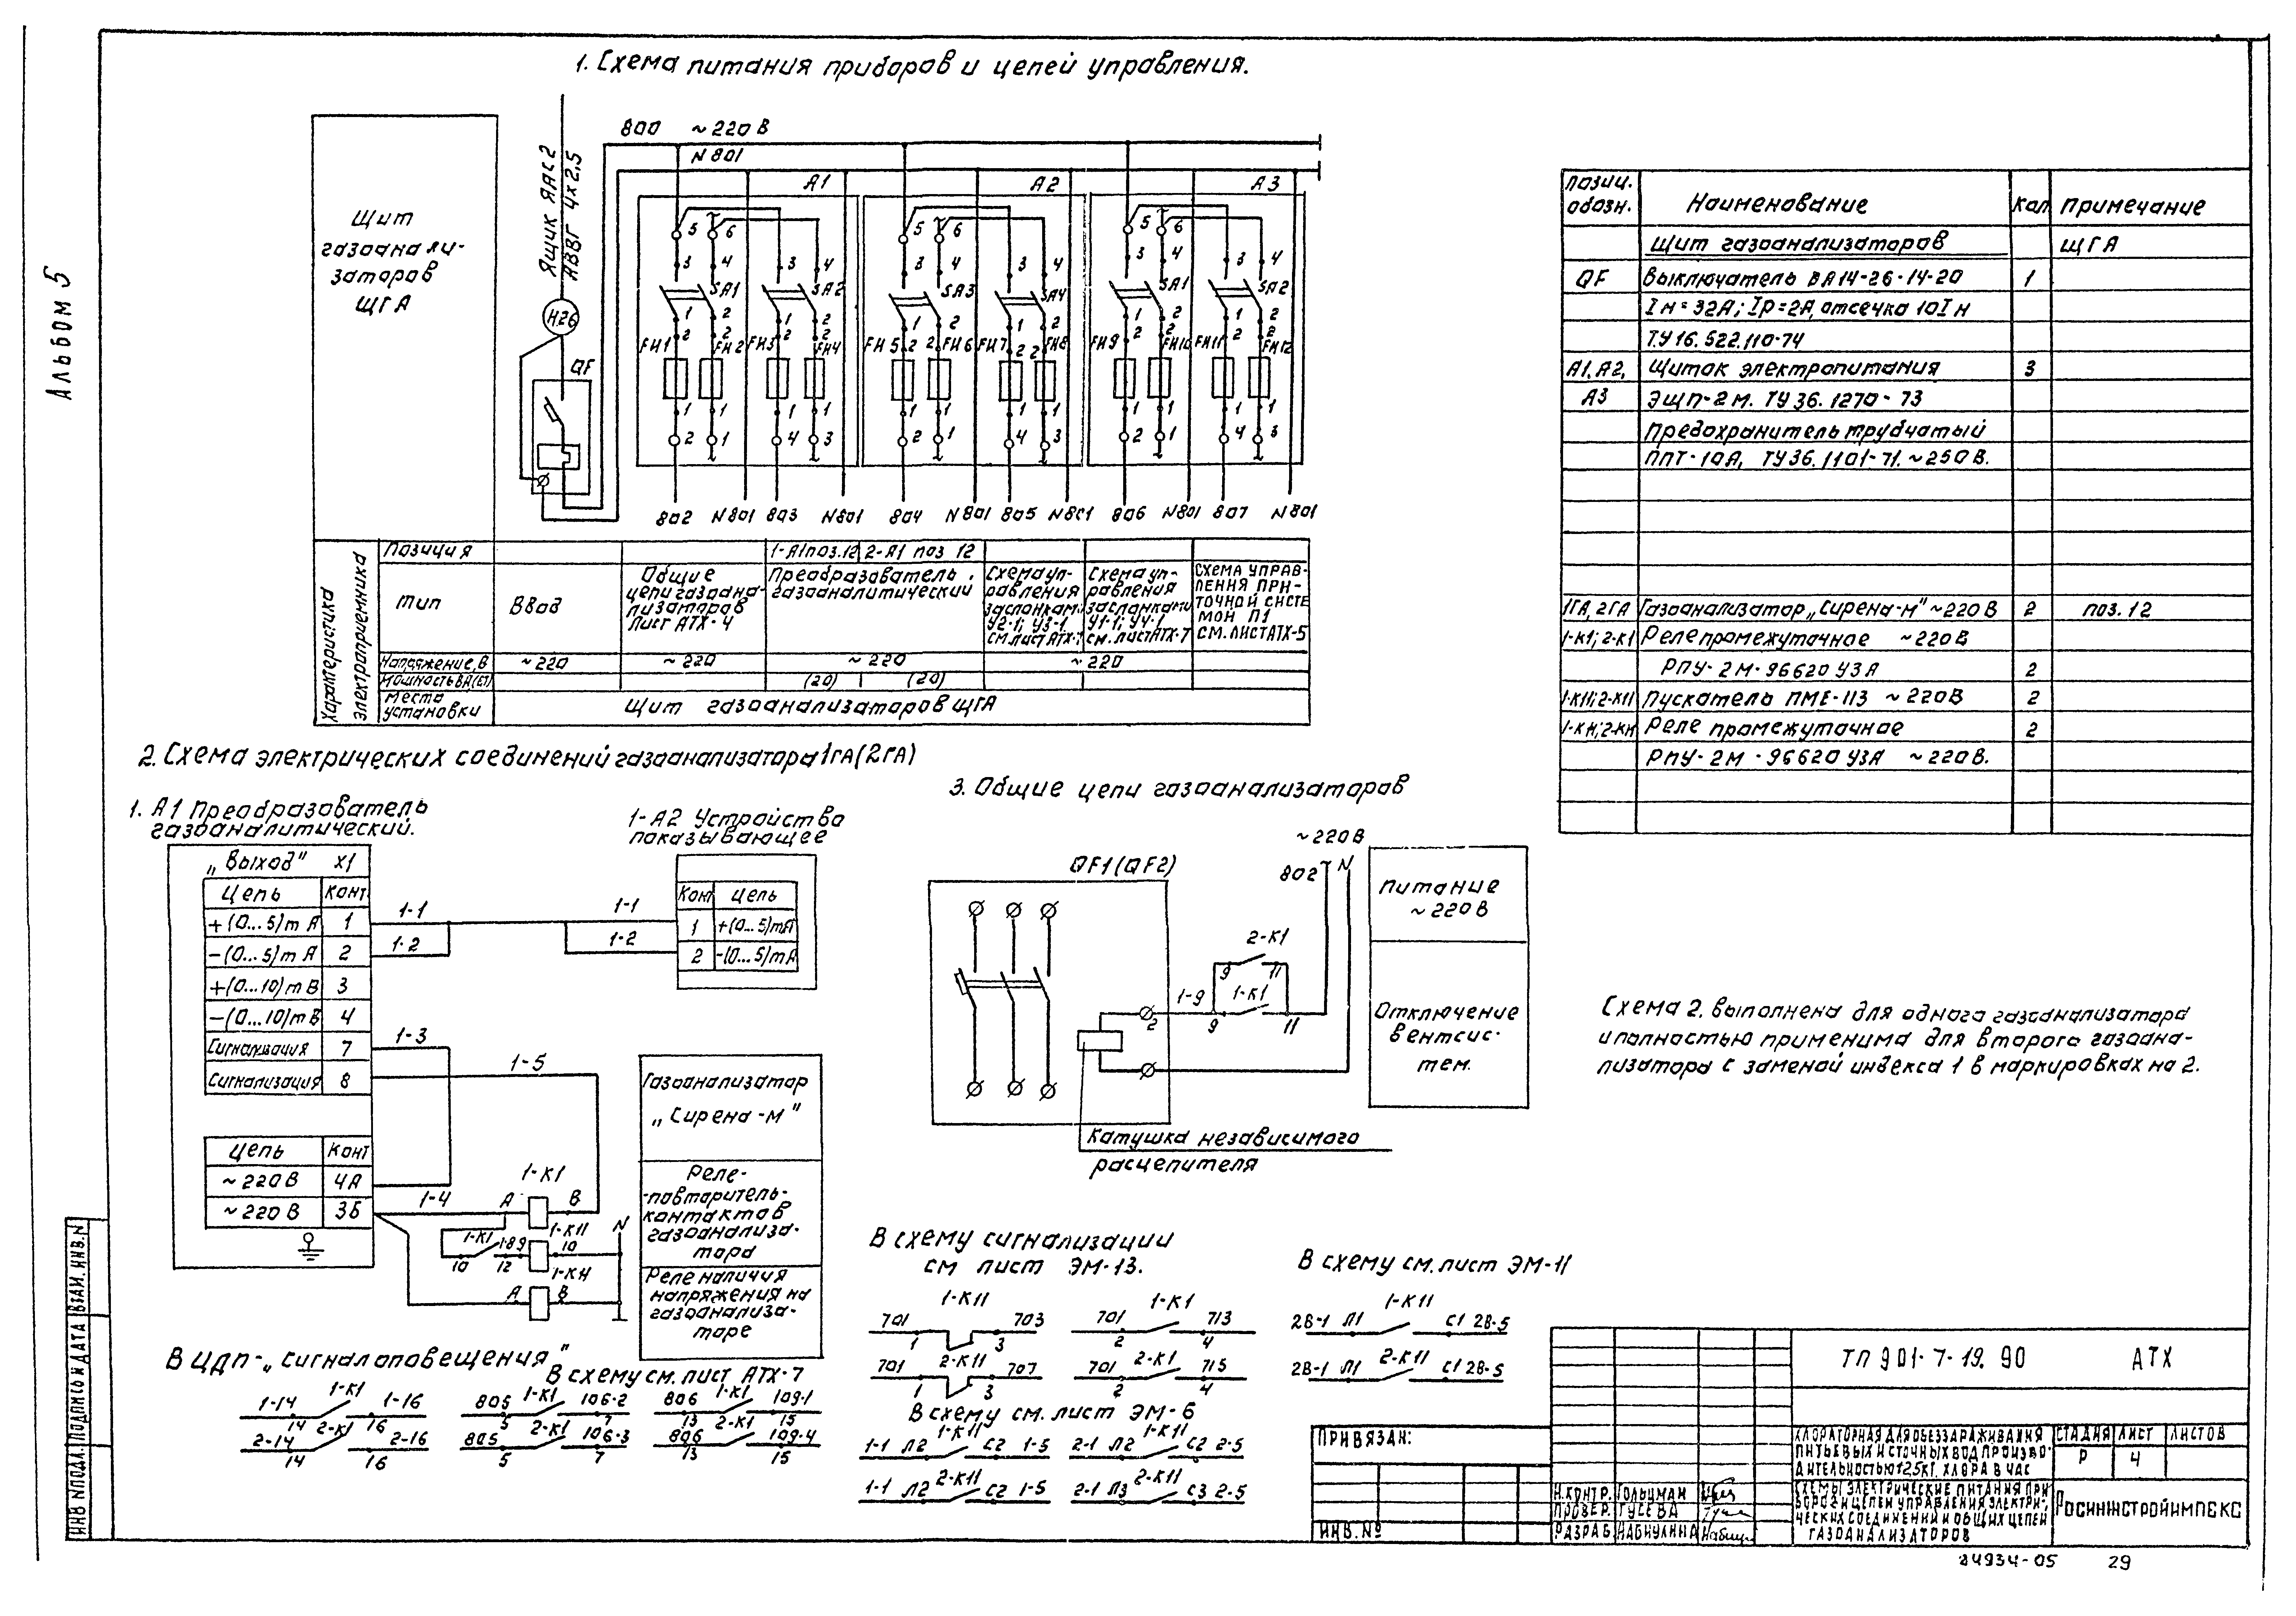 Альбом 5
1. Схема питания приборов и цепей управления.
Щит
газоанали-
заторов
ЩГА
Ящик ЯАС2
АВВГ 4х2,5
Н.26
QF
800 ~220В
N801
А1
А2
А3
5 6 5 6 5 6
3 4 3 4 3 4 3 4 3 4 3 4
SA1 SA2 SA3 SA4 SA1 SA2
1 2 1 2 1 2 1 2 1 2 1 2
FИ1 FИ2 FИ3 FИ4 FИ5 FИ6 FИ7 FИ8 FИ9 FИ10 FИ11 FИ12
2 1 4 3 2 1 4 3 2 1 4 3
802 N801 803 N801 804 N801 805 N801 806 N801 807 N801
Характеристика
электроприемника
Позиция
1-А1 поз.12 2-А1 поз 12
Тип
Ввод
Общие
цепи газоана-
лизаторов
Лист АТХ-4
Преобразователь
газоаналитический
Схема уп-
равления
заслонками
У2-1; У3-1
см.лист АТХ-7
Схема уп-
равления
заслонками
У1-1; У4-1
см.лист АТХ-7
СХЕМА УПРАВ-
ЛЕНИЯ ПРИ-
ТОЧНОЙ СИСТЕ
МОЙ П1
СМ.ЛИСТ АТХ-5
Напряжение, В
~220 ~220 ~220 ~220
Мощность ВА(Вт)
(20) (20)
Место
установки
Щит газоанализаторов ЩГА
позич.
обозн.
Наименование
Кол
примечание
Щит газоанализаторов ЩГА
QF Выключатель ВА14-26-14-20 1
Iн=32А; Iр=2А, отсечка 10Iн
ТУ16.522.110-74
А1, А2, Щиток электропитания 3
А3 ЭЩП-2м. ТУ36.1270-73
Предохранитель трубчатый
ППТ-10А, ТУ36.1101-71. ~250В.
1ГА, 2ГА Газоанализатор „Сирена-м" ~220В 2 поз. 12
1-К1; 2-К1 Реле промежуточное ~220В
РПУ-2М-96620 У3А 2
1-К11; 2-К11 Пускатель ПМЕ-113 ~220В 2
1-КН; 2-КН Реле промежуточное 2
РПУ-2М-96620 У3А ~220В.
2. Схема электрических соединений газоанализатора 1ГА(2ГА)
1. А1 Преобразователь
газоаналитический.
„Выход" Х1
Цепь Конт
+(0...5)mA 1
-(0...5)mA 2
+(0...10)mВ 3
-(0...10)mВ 4
Сигнализация 7
Сигнализация 8
Цепь Конт
~220В 4А
~220В 3Б
1-А2 Устройство
показывающее
Конт Цепь
1 +(0...5)mA
2 -(0...5)mA
1-1 1-1
1-2 1-2
1-3
1-5
1-4
1-К1
А В
N
1-К1 1-89 1-К11
10 12 10
1-КН
А В
Газоанализатор
„Сирена-м"
Реле-
-повторитель-
контактов
газоанализа-
тора
Реле наличия
напряжения на
газоанализа-
торе
3. Общие цепи газоанализаторов
QF1(QF2)
~220В
802 N
2-К1
9 11
1-9
1-К1
2 9 11
Питание
~220В
Отключение
вентсис-
тем.
Катушка независимого
расцепителя
Схема 2. выполнена для одного газоанализатора
и полностью применима для второго газоана-
лизатора с заменой индекса 1 в маркировках на 2.
В ЦДП-„Сигнал оповещения"
1-14 1-К1 1-16
14 16
2-14 2-К1 2-16
14 16
В схему см. лист АТХ-7
805 1-К1 106-2
5 7
805 2-К1 106-3
5 7
806 1-К1 109-1
13 15
806 2-К1 109-4
13 15
В схему сигнализации
см лист ЭМ-13.
1-К11
701 703
1 3
701 2-К11 707
1 3
1-К1
701 713
2 4
701 2-К1 715
2 4
В схему см. лист ЭМ-6
1-1 Л2 1-К11 С2 1-5
2-1 Л2 1-К11 С2 2-5
1-1 Л2 2-К11 С2 1-5
2-1 Л3 2-К11 С3 2-5
В схему см. лист ЭМ-11
2В-1 Л1 1-К11 С1 2В-5
2В-1 Л1 2-К11 С1 2В-5
ТП 901-7-19.90 АТХ
ПРИВЯЗАН:
ИНВ.№
ХЛОРАТОРНАЯ ДЛЯ ОБЕЗЗАРАЖИВАНИЯ
ПИТЬЕВЫХ И СТОЧНЫХ ВОД ПРОИЗВО-
ДИТЕЛЬНОСТЬЮ 12,5КГ. ХЛОРА В ЧАС
СТАДИЯ ЛИСТ ЛИСТОВ
Р 4
Н.КОНТР. ГОЛЬЦМАН
ПРОВЕР. ГУСЕВА
РАЗРАБ. НАБИУЛИНА
СХЕМЫ ЭЛЕКТРИЧЕСКИЕ ПИТАНИЯ ПРИ
БОРОВ И ЦЕПЕЙ УПРАВЛЕНИЯ ЭЛЕКТРИ-
ЧЕСКИХ СОЕДИНЕНИЙ И ОБЩИХ ЦЕПЕЙ
ГАЗОАНАЛИЗАТОРОВ
РОСИНЖСТРОЙИМПЕКС
ИНВ №ПОДЛ. ПОДПИСЬ И ДАТА ВЗАМ. ИНВ. N
24934-05 29